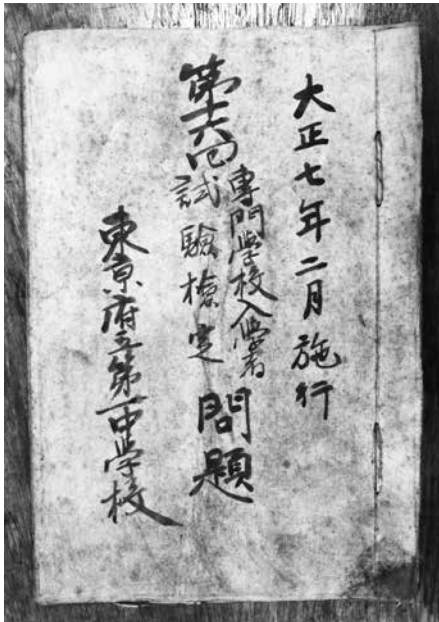 大正七年二月施行
第十六回
專門學校入學者
試驗檢定
問題
東京府立第一中学校